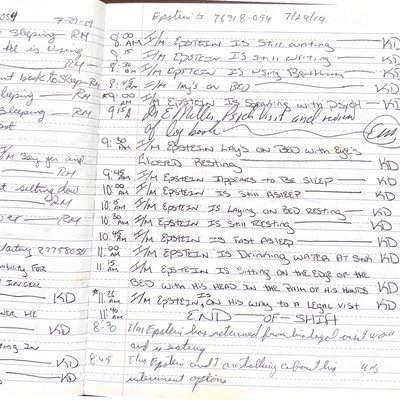 7-29-19
Sleeping — RM
he is using
RM
nt back to sleep — RM
leeping — RM
Sleeping — RM
RM
I/M say yes and
RM
t sitting dow
RM
— RM
27758050
ability for
IN CELL
KD
KD
KD
ting IN
KD
KD
Epstein 76318-054 7/29/19
8:00 AM I/M EPSTEIN IS STILL WRITING — KD
8:15 AM I/M EPSTEIN IS STILL WRITING — KD
8:30 AM I/M EPSTEIN IS USING BATHROOM — KD
8:45 AM I/M LAYS ON BED — KD
*9:00 AM I/M EPSTEIN IS SPEAKING WITH PSYCH — KD
9:15A Psych visit and review
of log book
9:30 AM I/M EPSTEIN LAYS ON BED WITH EYE'S
CLOSED RESTING — KD
9:45 AM I/M EPSTEIN APPEARS TO BE SLEEP — KD
10:00 AM I/M EPSTEIN IS STILL ASLEEP — KD
10:15 AM I/M EPSTEIN IS LAYING ON BED RESTING — KD
10:30 AM I/M EPSTEIN IS STILL RESTING — KD
10:45 AM I/M EPSTEIN IS FAST ASLEEP — KD
11:00 AM I/M EPSTEIN IS DRINKING WATER AT SINK KD
11:15 AM I/M EPSTEIN IS SITTING ON THE EDGE OF THE
BED WITH HIS HEAD IN THE PALM OF HIS HANDS KD
*11:26 AM I/M EPSTEIN IS ON HIS WAY TO A LEGAL VISIT KD
11:40 AM END — OF — SHIFT
8:30 I/m Epstein has returned from his legal visit
and is eating
8:45 I/m Epstein and I are talking about his
internment options